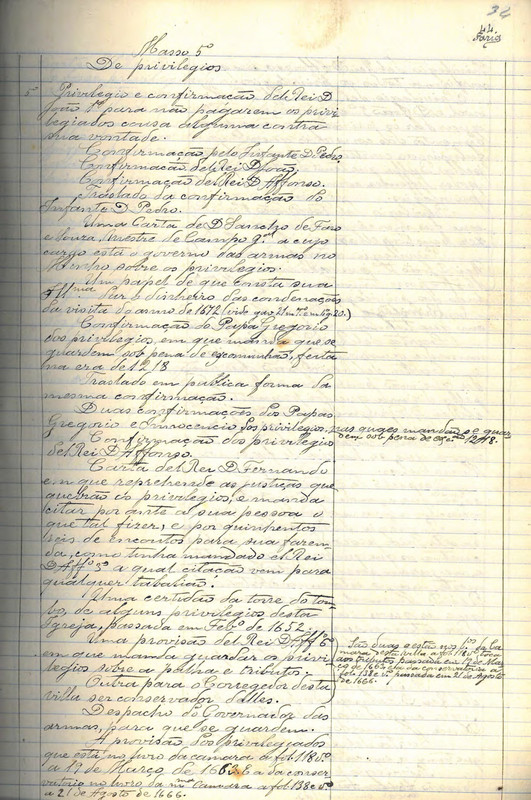 34
44
Faria
Masso 5º
De privilegios
5º Privilegio e confirmação del Rei D
João 1º para não pagarem os privi
legiados cousa alguma contra
sua vontade.
Confirmação pelo Infante D. Pedro.
Confirmação del Rei D. João,
Confirmação del Rei D. Affonso.
Traslado da confirmação do
Infante D. Pedro.
Uma Carta de D. Sancho de Faro
e Souza, Mestre de Campo g.ᵃˡ a cujo
cargo está o governo das armas no
Minho sobre os privilegios.
Um papel de que consta sua
Ill.ᵐᵃ Ser o dinheiro das condenações
da visita do anno de 1672 (vide gav. 2ª m. 7º
Confirmação do Papa Gregorio
dos privilegios, em que manda que se
guardem sob pena de excomunhão, feita
na era de 1218
Traslado em publica forma da
mesma confirmação.
Duas confirmações dos Papas
Gregorio e Innocencio dos privilegios, nas quaes mandão se guar
dem sob pena de 1218.
Confirmação dos privilegio
del Rei D. Affonso.
Carta del Rei D. Fernando
em que reprehende as justiças que
quebrão os privilegios, e manda
citar por ante a sua pessoa o
que tal fizer, e por quinhentos
seis de encoutos para sua fazen
da, como tinha mandado el Rei
D. Aff.º 3º a qual citação vem para
qualquer tabalião.
Uma certidão da torre do tom
bo, de alguns privilegios desta
Igreja, passada em Feb.º de 1652.
Uma provisão del Rei D. Aff.º 6º
em que manda guardar os privi
legios sobre a palha e tributos.
São duas e estão nos l.ᵒˢ da Ca
mara desta villa a fol. 118 vº
aos tributos passada em 17 de Mar
ço de 1663, e a da conservatoria a
fol. 138 vº passada em 21 de Agosto
de 1666.
Outra para o Corregedor desta
villa ser conservador delles.
Despacho do Governador das
armas, para que se guardem.
A provisão dos privilegiados
que está no livro da camara a fol. 118 vº
a 17 de Março de 1663. E a da conser
vatoria no livro da mª Camara a fol. 138 vº
a 21 de Agosto de 1666.